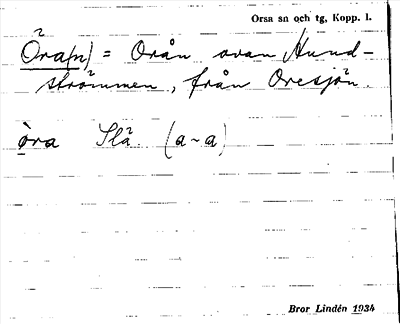 Orsa sn och tg, Kopp. l.
Öra(n) = Orån ovan Hund-
strömmen, från Oresjön.
öra Slå (a~a)
Bror Lindén 1934